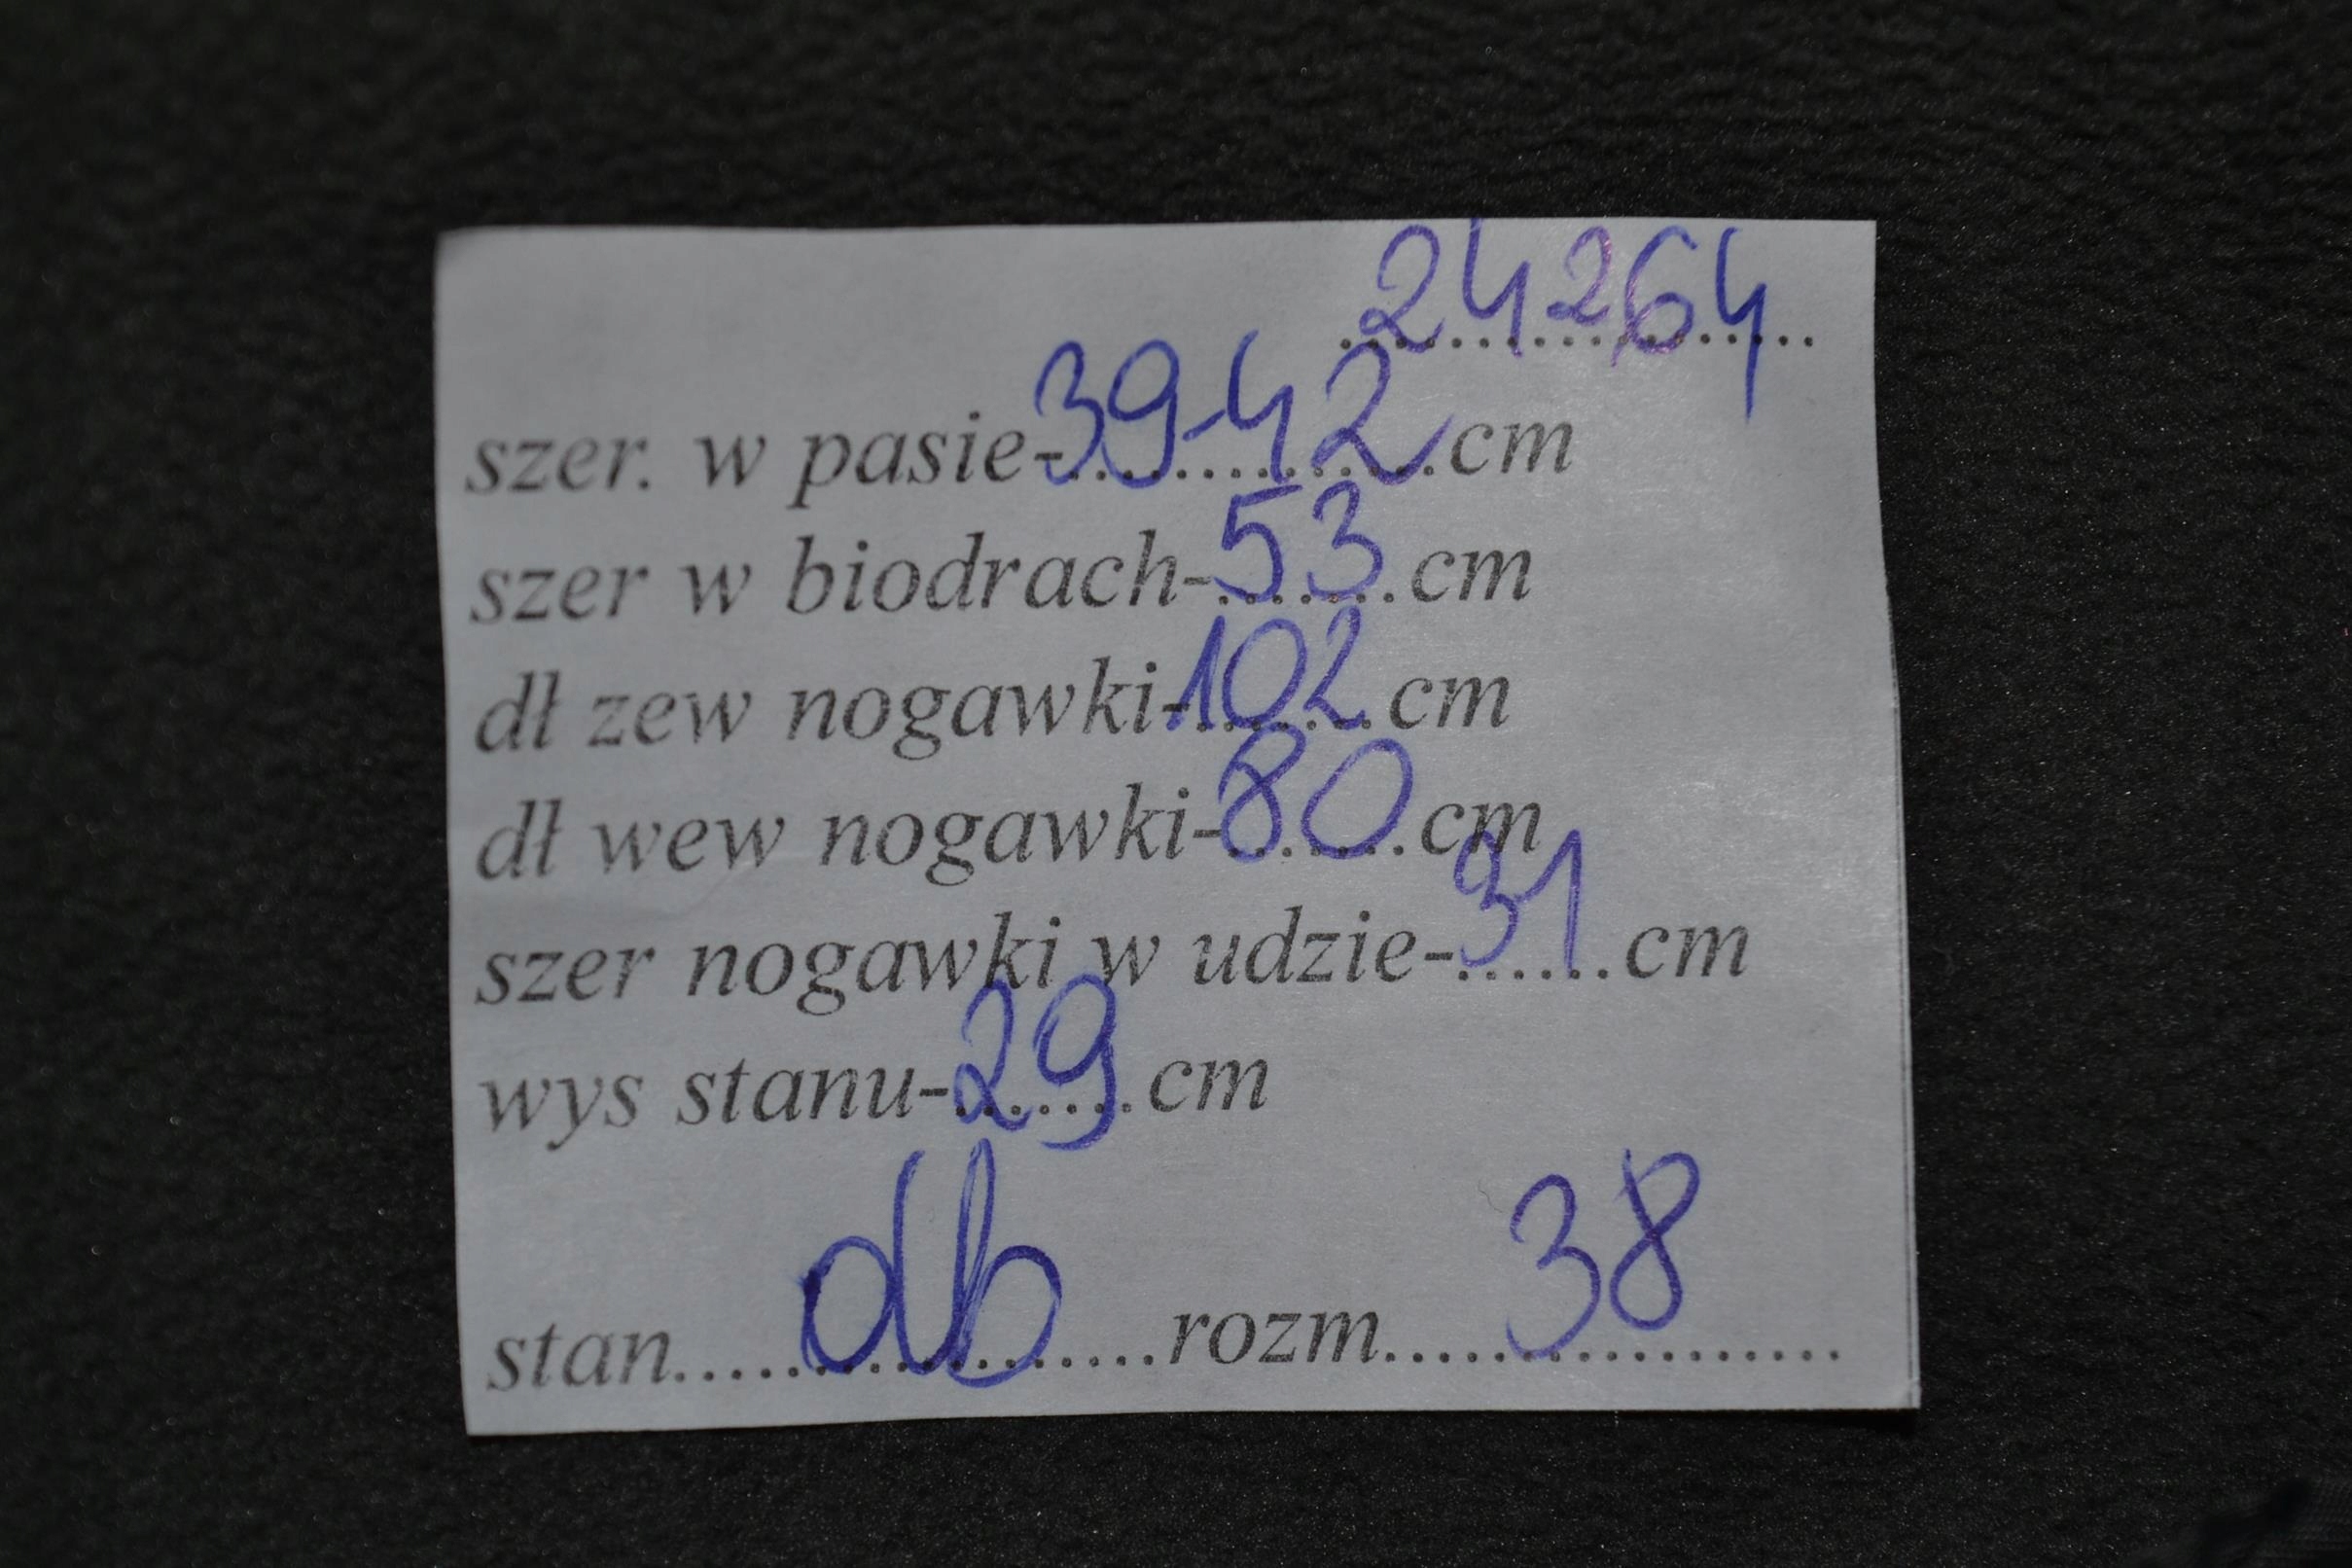 24264
szer. w pasie-39-42cm
szer w biodrach-53cm
dł zew nogawki-102cm
dł wew nogawki-80cm
szer nogawki w udzie-31cm
wys stanu-29cm
stan.....db.....rozm.....38.....